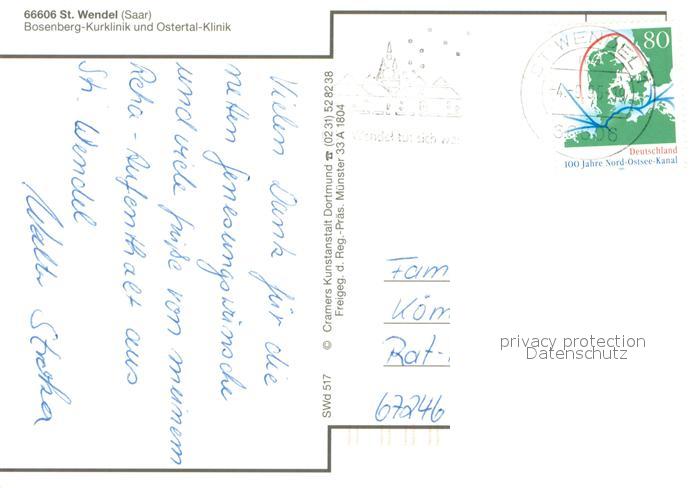 66606 St. Wendel (Saar)
Bosenberg-Kurklinik und Ostertal-Klinik
Vielen Dank für die
netten Genesungswünsche
und viele Grüße von meinem
Reha-Aufenthalt aus
St. Wendel
Walter
SWd 517 © Cramers Kunstanstalt Dortmund ☎ (02 31) 52 82 38
Freigeg. d. Reg.-Präs. Münster 33 A 1804
Wendel tut sich
ST WENDEL
80
Deutschland
100 Jahre Nord-Ostsee-Kanal
Fam
Köm
Rat-
67246
privacy protection
Datenschutz